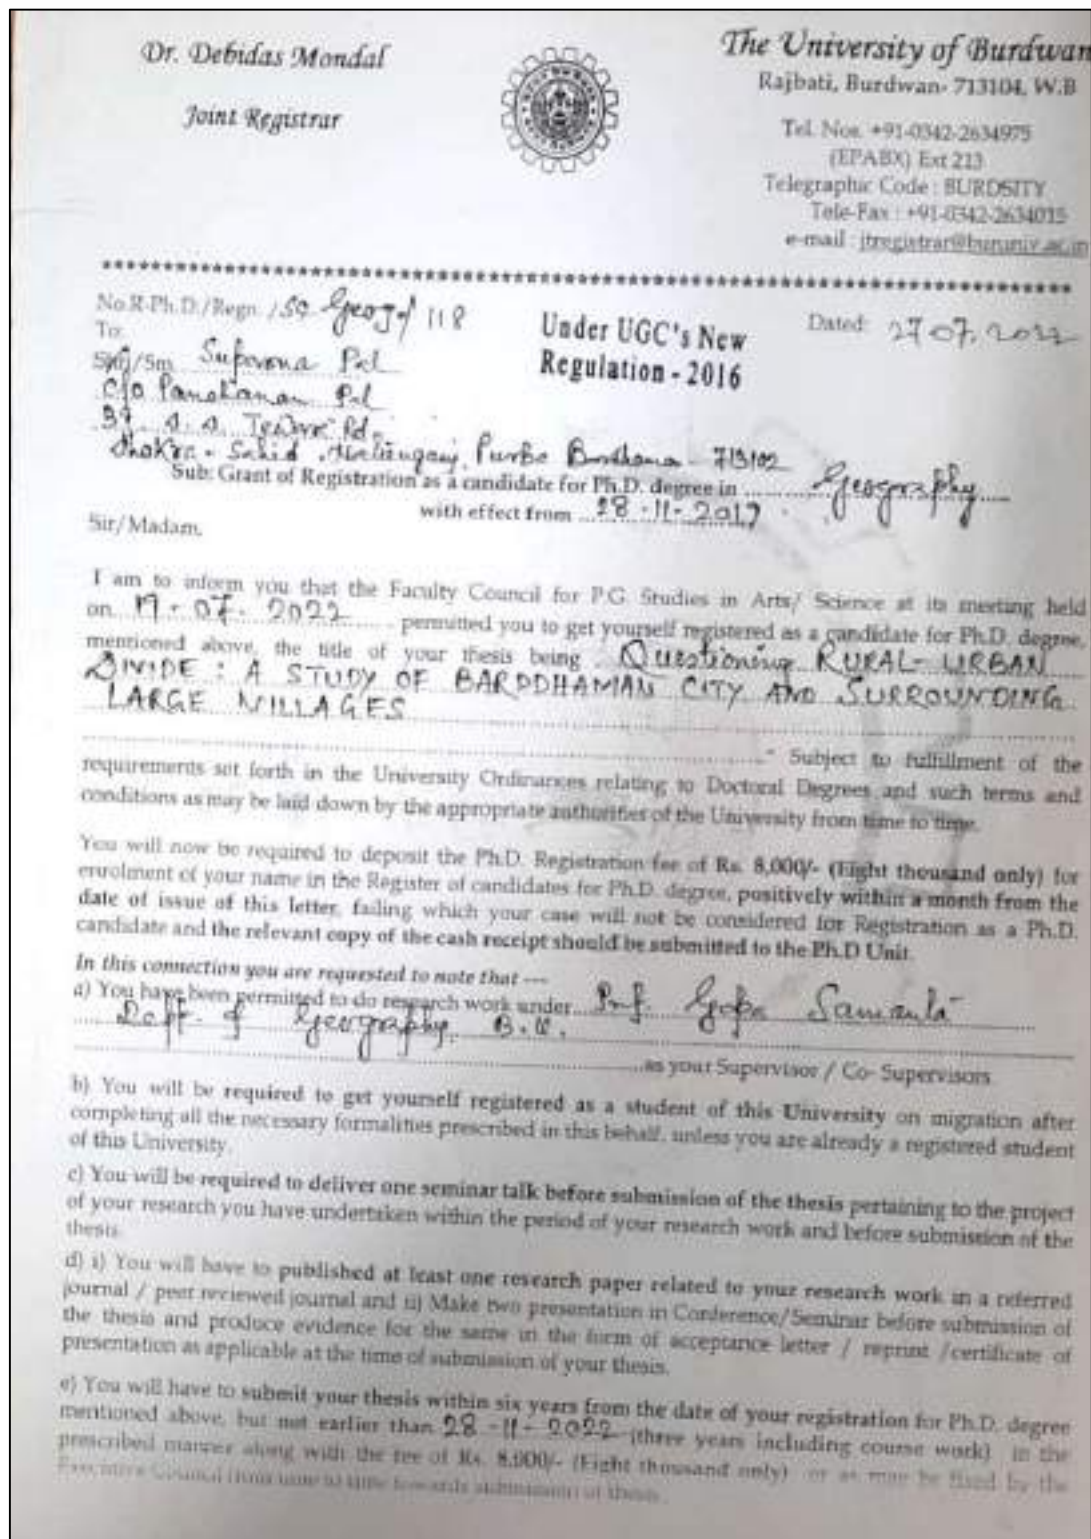 Dr. Debidas Mondal
Joint Registrar
The University of Burdwan
Rajbati, Burdwan- 713104, W.B
Tel. Nos. +91-0342-2634975
(EPABX) Ext 213
Telegraphic Code : BURDSITY
Tele-Fax : +91-0342-2634015
e-mail : jtregistrar@buruniv.ac.in
No.R-Ph.D./Regn. / Geog/ 118
Dated: 27.07.2022
To:
Under UGC's New
Regulation - 2016
Sri/Sm. Suparona Pal
C/O Panchanan Pal
39
Purba Bardhaman - 713102
Sub: Grant of Registration as a candidate for Ph.D. degree in Geography
with effect from 28-11-2019.
Sir/Madam,
I am to inform you that the Faculty Council for P.G. Studies in Arts/ Science at its meeting held
on 19-07-2022 permitted you to get yourself registered as a candidate for Ph.D. degree,
mentioned above, the title of your thesis being Questioning RURAL-URBAN
DIVIDE : A STUDY OF BARDDHAMAN CITY AND SURROUNDING
LARGE VILLAGES
" Subject to fulfillment of the
requirements set forth in the University Ordinances relating to Doctoral Degrees and such terms and
conditions as may be laid down by the appropriate authorities of the University from time to time.
You will now be required to deposit the Ph.D. Registration fee of Rs. 8,000/- (Eight thousand only) for
enrolment of your name in the Register of candidates for Ph.D. degree, positively within a month from the
date of issue of this letter, failing which your case will not be considered for Registration as a Ph.D.
candidate and the relevant copy of the cash receipt should be submitted to the Ph.D Unit.
In this connection you are requested to note that ---
a) You have been permitted to do research work under Prof. Gopa Samanta
Dept. of Geography, B.U.
as your Supervisor / Co- Supervisors
b) You will be required to get yourself registered as a student of this University on migration after
completing all the necessary formalities prescribed in this behalf, unless you are already a registered student
of this University.
c) You will be required to deliver one seminar talk before submission of the thesis pertaining to the project
of your research you have undertaken within the period of your research work and before submission of the
thesis.
d) i) You will have to published at least one research paper related to your research work in a referred
journal / peer reviewed journal and ii) Make two presentation in Conference/Seminar before submission of
the thesis and produce evidence for the same in the form of acceptance letter / reprint /certificate of
presentation as applicable at the time of submission of your thesis.
e) You will have to submit your thesis within six years from the date of your registration for Ph.D. degree
mentioned above, but not earlier than 28-11-2022 (three years including course work) in the
prescribed manner along with the fee of Rs. 8,000/- (Eight thousand only) or as may be fixed by the
Executive Council from time to time towards submission of thesis.